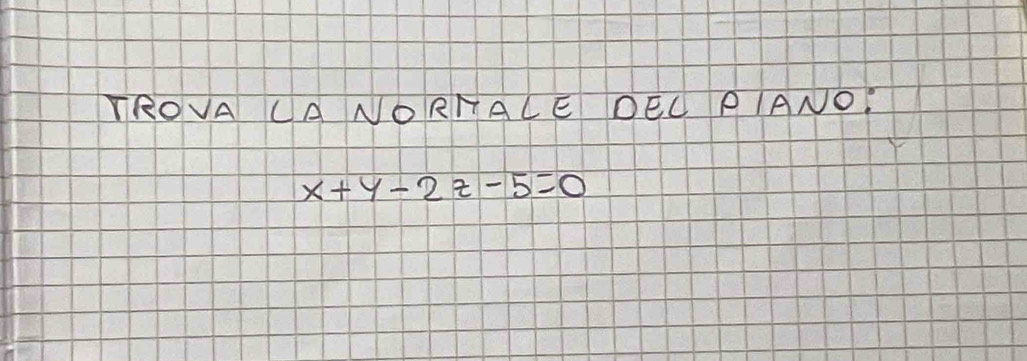 TROVA LA NORMALE DEL PIANO:
x+y-2z-5=0